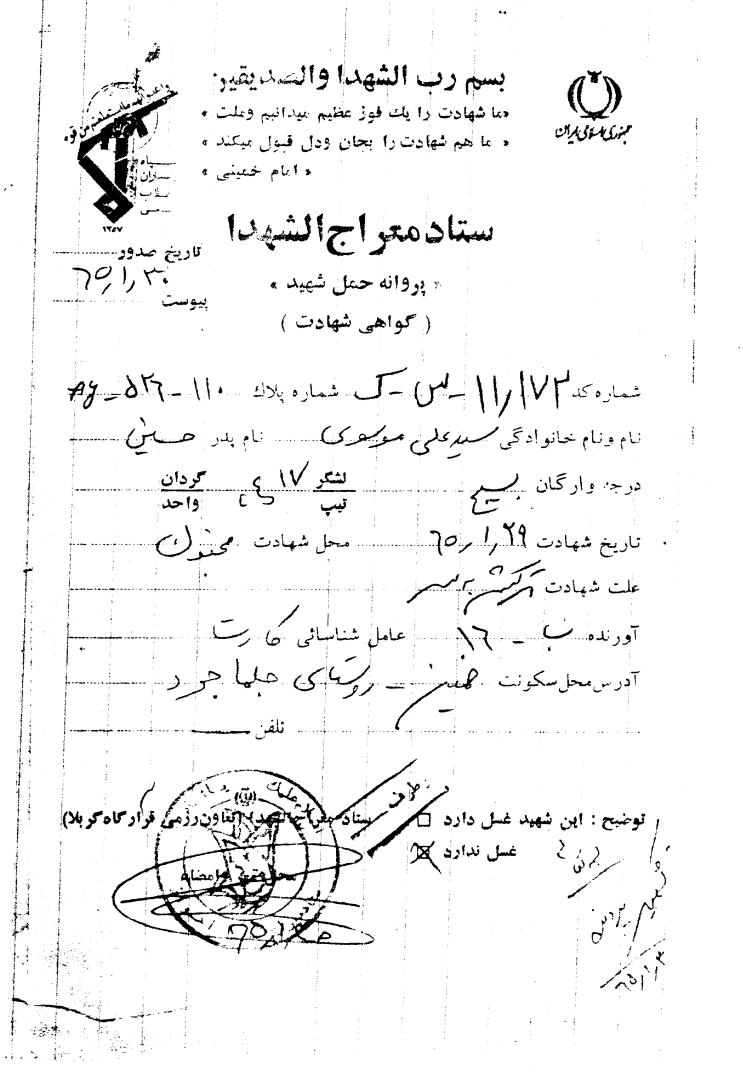 بسم رب الشهدا والصدیقین
«ما شهادت را یك فوز عظیم میدانیم وملت»
« ما هم شهادت را بجان ودل قبول میکند»
« امام خمینی »
جمهوری اسلامی ایران
۱۳۵۷
ستاد معراج الشهدا
تاریخ صدور ۶۵/۱/۳۰
« پروانه حمل شهید »
پیوست
( گواهی شهادت )
شماره کد ۱۱/۱۷۳ - س - ك شماره پلاك ۱۱۰ - ۵۲۶ - Ag
نام ونام خانوادگی سید علی موسوی نام پدر حسین
درجه وارگان بسیج لشگر ۱۷ گردان
تیپ واحد
تاریخ شهادت ۶۵/۱/۲۹ محل شهادت مجنون
علت شهادت ترکش به سر
آورنده ب - ۱۶ عامل شناسائی کارت
آدرس محل سکونت خمین - روستای جلماجرد
تلفن
توضیح : این شهید غسل دارد □ ستاد معراج الشهدا (تعاون رزمی قرارگاه کربلا)
غسل ندارد ☒
محل مهر و امضاء